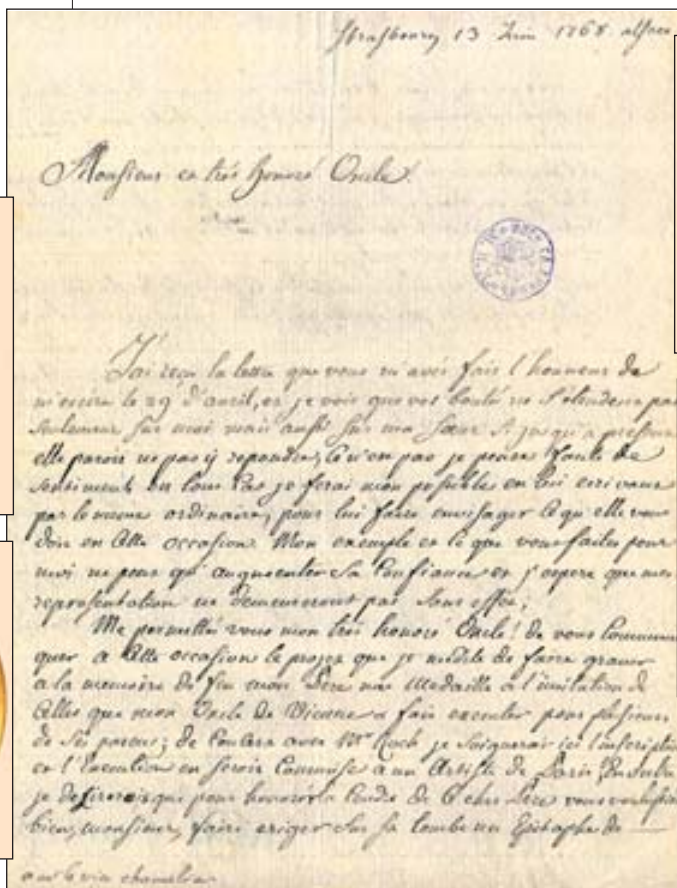 Strasbourg 13 Juin 1768
Monsieur et très honoré Oncle!
J'ai reçu la lettre que vous m'avés fait l'honneur de
m'ecrire le 29 d'avril, et je vois que vos bonté ne s'étendent pas
seulement sur moi mais aussi sur ma Sœur si jusqu'a present
elle paroit ne pas ÿ repondre, Ce n'est pas je pense faute de
sentiment en tout Cas je ferai mon possible en lui ecrivant
par le meme ordinaire, pour lui faire envisager Ce qu'elle vous
doit en Cette occasion. Mon exemple et ce que vous faites pour
moi ne peut qu'augmenter Sa Confiance et j'espere que mes
representation ne demeureront pas sans effet;
Me permetté vous mon très honoré Oncle! de vous Communi
quer a Cette occasion le projet que je médite de faire graver
a la memoire de feu mon Pere une Medaille a l'imitation de
Celles que mon Oncle de Vienne a fait executer pour plusieurs
de Ses parens; de Concert avec Mr Koch je soignerai ici l'inscription
et l'execution en seroit Commise a un Artiste de Paris,
je desirerois que pour honorer la Cendre de Ce cher Pere vous voulussiez
bien, monsieur, faire eriger sur sa tombe un Epitaphe de